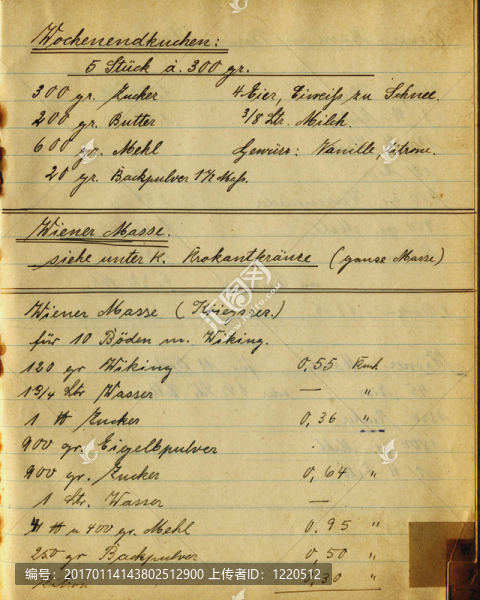 Wochenendkuchen:
5 Stück á. 300 gr.
300 gr. Zucker 4 Eier, Eiweiß zu Schnee.
200 gr. Butter 3/8 Ltr. Milch.
600 gr. Mehl Gewürz: Vanille, Zitrone.
20 gr. Backpulver 1½ Maß.
Wiener Masse.
siehe unter K. Krokantkränze (ganze Masse)
Wiener Masse (Kriegszer.)
für 10 Böden m. Wiking.
120 gr Wiking 0,55 Rmk.
1 3/4 Ltr Wasser — "
1 ℔ Zucker 0,36 "
900 gr. Eigelbpulver .
900 gr. Zucker 0,64 "
1 Ltr. Wasser —
4 ℔ u 400 gr. Mehl 0,95 "
250 gr Backpulver 0,50 "
30 "
编号：20170114143802512900 上传者ID：1220512